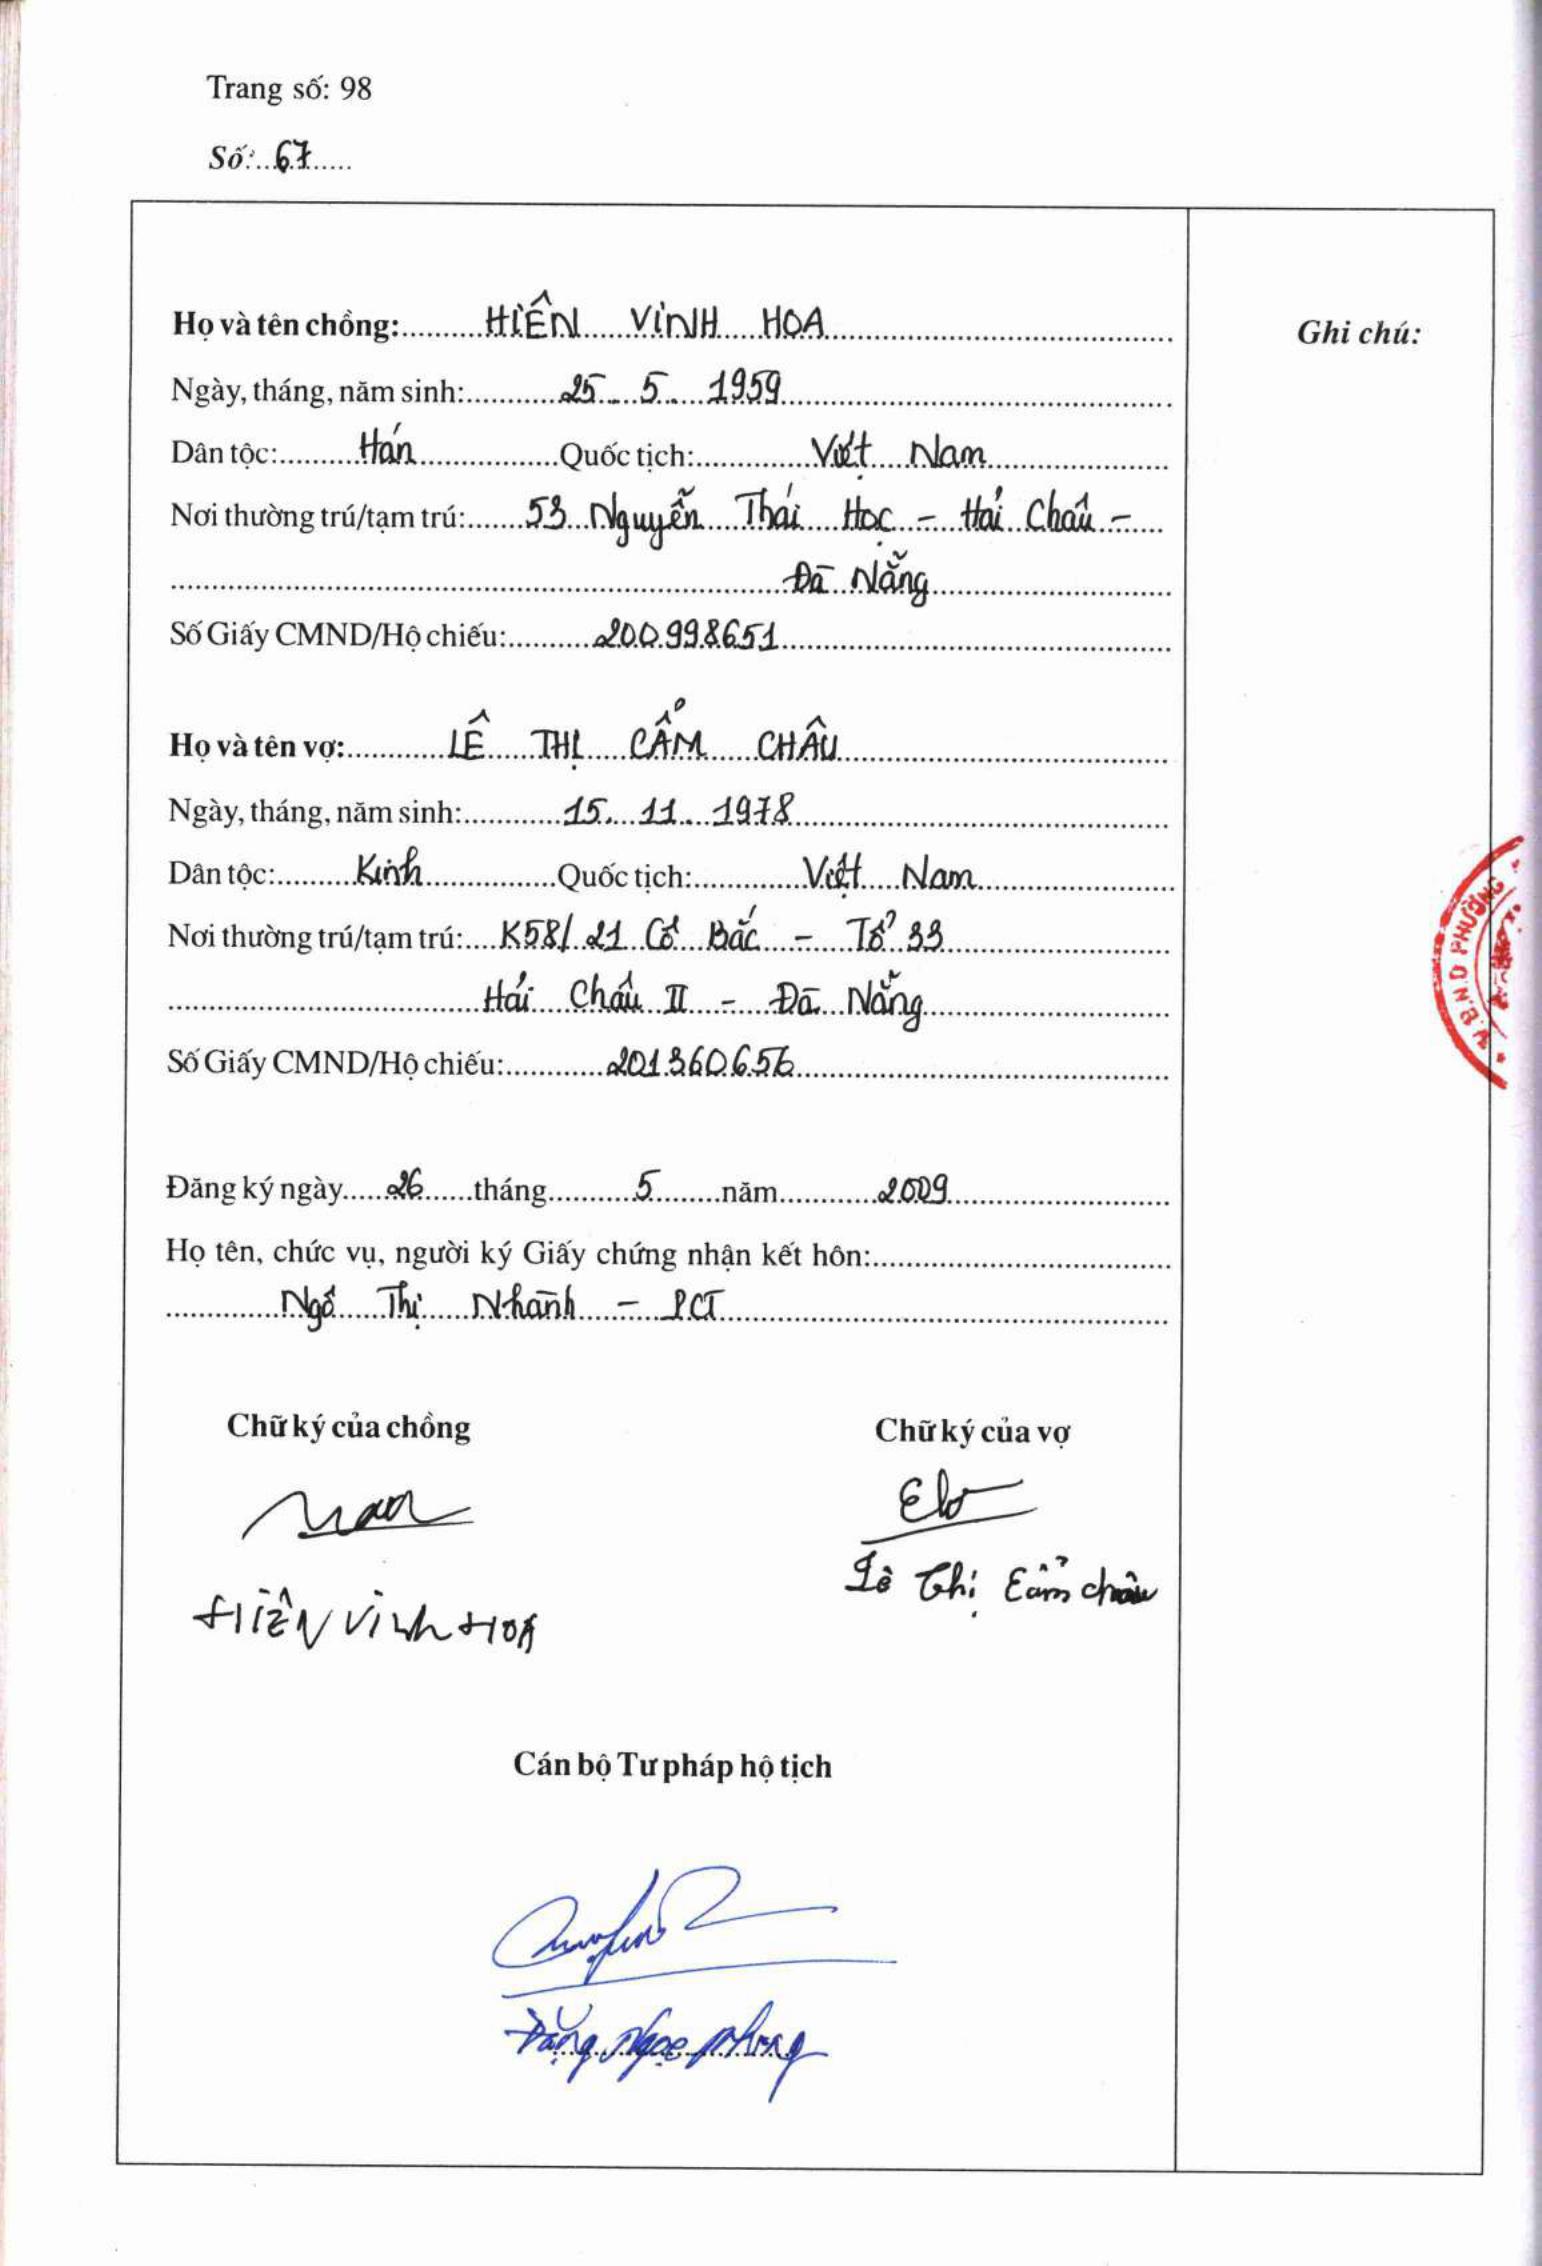 Trang số: 98
Số: 67
Họ và tên chồng: HIÊN VĨNH HOA
Ghi chú:
Ngày, tháng, năm sinh: 25 . 5 . 1959
Dân tộc: Hán Quốc tịch: Việt Nam
Nơi thường trú/tạm trú: 53 Nguyễn Thái Học - Hải Châu -
Đà Nẵng
Số Giấy CMND/Hộ chiếu: 200998651
Họ và tên vợ: LÊ THỊ CẨM CHÂU
Ngày, tháng, năm sinh: 15. 11. 1978
Dân tộc: Kinh Quốc tịch: Việt Nam
Nơi thường trú/tạm trú: K58/21 Cô Bắc - Tổ 33
Hải Châu II - Đà Nẵng
Số Giấy CMND/Hộ chiếu: 201360656
Đăng ký ngày 26 tháng 5 năm 2009
Họ tên, chức vụ, người ký Giấy chứng nhận kết hôn:
Ngô Thị Nhành - PCT
Chữ ký của chồng Chữ ký của vợ
Lê Thị Cẩm Châu
HIÊN VĨNH HOA
Cán bộ Tư pháp hộ tịch
Đặng Ngọc Phụng
U.B.N.D PHƯỜNG